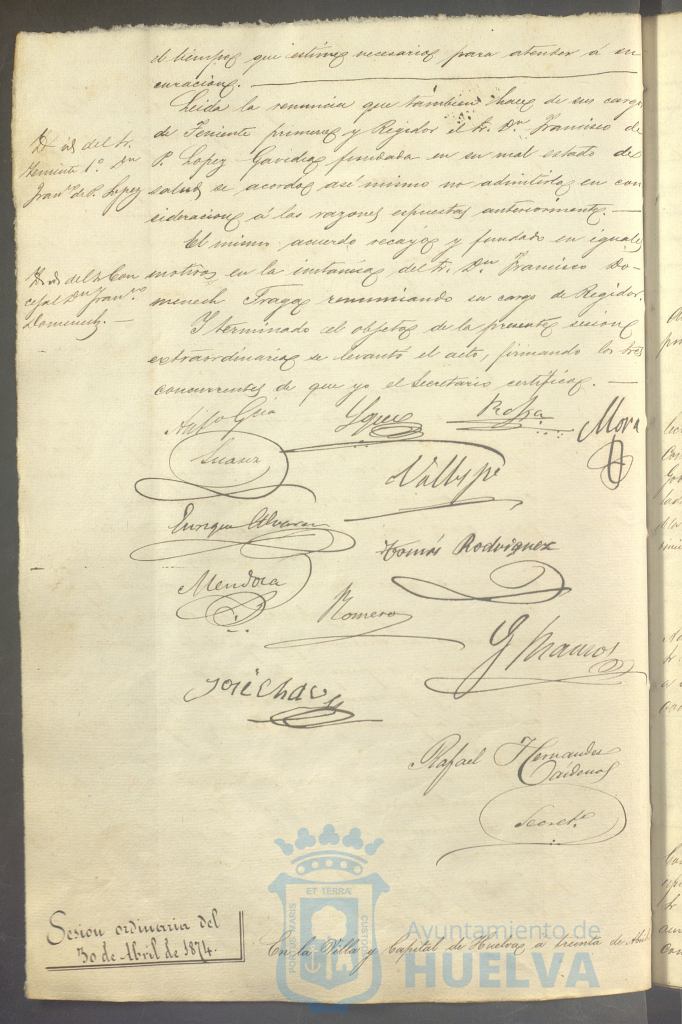 el tiempo que estime necesario para atender á su
curacion.
Leida la renuncia que tambien hace de sus cargos
de Teniente primero y Regidor el Sr. Dn. Francisco de
P. Lopez Gavidia fundada en su mal estado de
salud se acordo asi mismo no admitirla en con
sideracion á las razones espuestas anteriormente.
El mismo acuerdo recayó y fundado en iguales
motivos en la instancia del Sr. Dn. Francisco Do-
menech Fraga renunciando su cargo de Regidor.
I terminado el objeto de la presente sesion
extraordinaria se levantó el acto, firmando los Sres
concurrentes de que yo el Secretario certifico.
Id. id. del Sr.
Teniente 1º. Dn
Franco. de P. Lopez
Id. id. del Sr Con
cejal Dn Franco.
Domenech.
Mora
Suarez
Enrique Alvarez
Tomás Rodriguez
Mendoza
Romero
José Chav
Rafael Hernandez
Cárdenas
Secreto.
Sesion ordinaria del
30 de Abril de 1874.
En la Villa y Capital de Huelva a treinta de Abril
ET TERRÆ
PORTUS MARIS
CUSTODIA
Ayuntamiento de
HUELVA